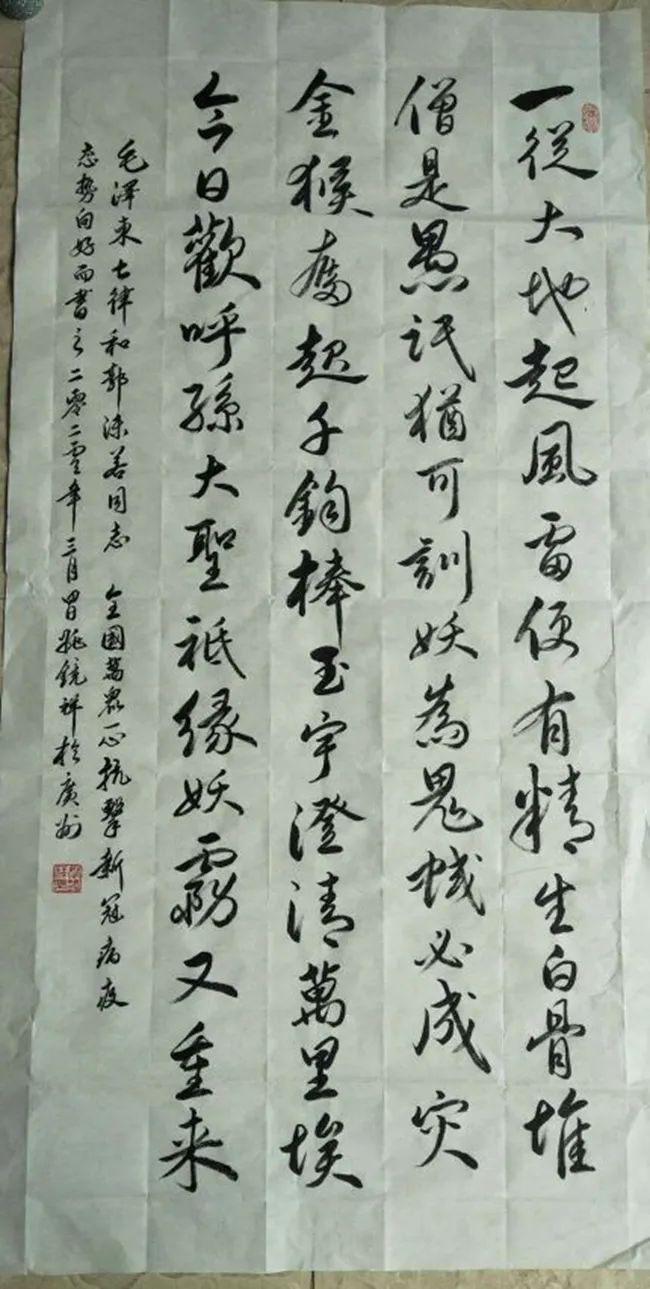 一從大地起風雷便有精生白骨堆
僧是愚氓猶可訓妖為鬼蜮必成灾
金猴奮起千鈞棒玉宇澄清萬里埃
今日歡呼孫大聖祇緣妖霧又重来
毛澤東七律和郭沫若同志 全國萬眾一心抗擊新冠病疫
态势向好而書之二零二零年三月姚鏡祥於廣州